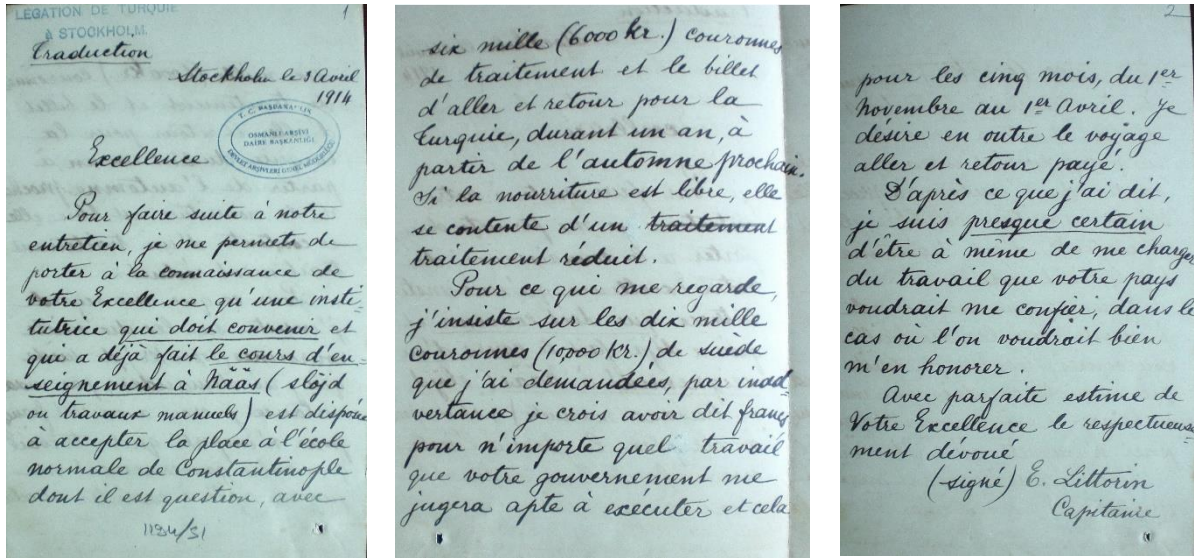 LÉGATION DE TURQUIE
à STOCKHOLM.
1
Traduction
Stockholm le 3 Avril
1914
T. C. BAŞBAKANLIK
OSMANLI ARŞİVİ
DAİRE BAŞKANLIĞI
DEVLET ARŞİVLERİ GENEL MÜDÜRLÜĞÜ
Excellence
Pour faire suite à notre
entretien, je me permets de
porter à la connaissance de
votre Excellence qu'une insti-
tutrice qui doit convenir et
qui a déjà fait le cours d'en-
seignement à Nääs (slöjd
ou travaux manuels) est disposée
à accepter la place à l'école
normale de Constantinople
dont il est question, avec
1194/51
six mille (6000 kr.) couronnes
de traitement et le billet
d'aller et retour pour la
Turquie, durant un an, à
partir de l'automne prochain.
Si la nourriture est libre, elle
se contente d'un traitement
traitement réduit.
Pour ce qui me regarde,
j'insiste sur les dix mille
couronnes (10,000 kr.) de suède
que j'ai demandées, par inad-
vertance je crois avoir dit francs
pour n'importe quel travail
que votre gouvernement me
jugera apte à exécuter et cela
2
pour les cinq mois, du 1er
Novembre au 1er Avril. Je
désire en outre le voyage
aller et retour payé.
D'après ce que j'ai dit,
je suis presque certain
d'être à même de me charger
du travail que votre pays
voudrait me confier, dans le
cas où l'on voudrait bien
m'en honorer.
Avec parfaite estime de
Votre Excellence le respectueuse
ment dévoué
(signé) E. Littorin
Capitaine